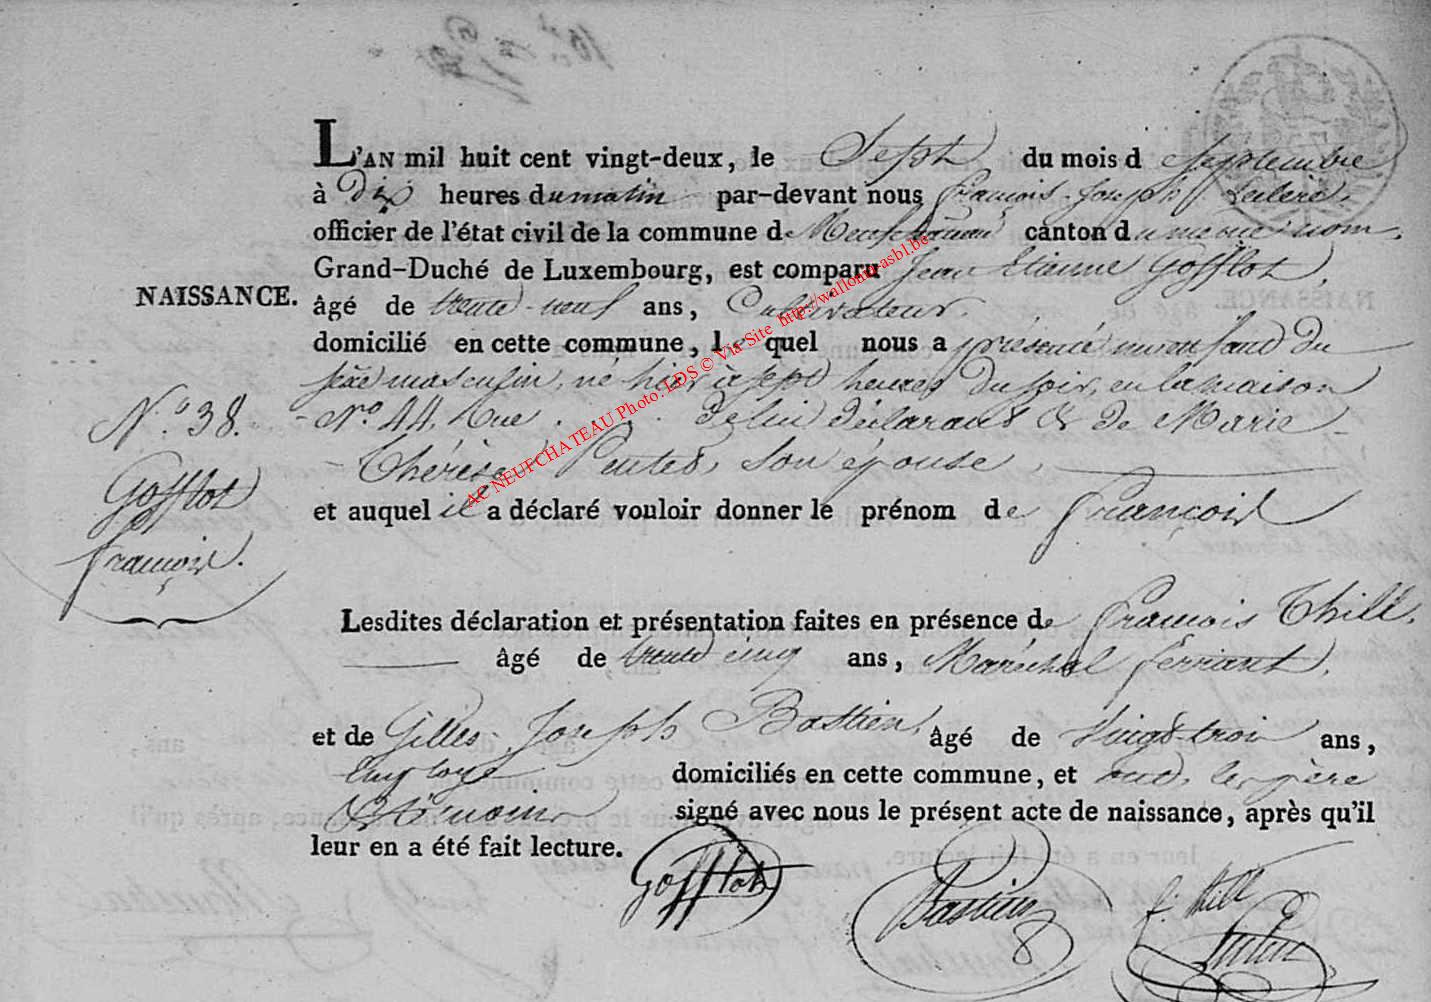 L'AN mil huit cent vingt-deux, le Sept du mois d Septembre
à Dix heures du matin par-devant nous François-Joseph Leclere,
officier de l'état civil de la commune de Neufchateau canton du même nom,
Grand-Duché de Luxembourg, est comparu Jean Etienne Gofflot,
NAISSANCE.
âgé de trente-neuf ans, Cultivateur,
domicilié en cette commune, le quel nous a présenté un enfant du
sexe masculin, né hier à sept heures du soir, en la maison
N.° 38.
N.° 44, Rue . . . de lui déclarant & de Marie
Thérèse Pentes, son épouse,
Gofflot
François.
et auquel il a déclaré vouloir donner le prénom de François
Lesdites déclaration et présentation faites en présence de François Thill,
âgé de trente cinq ans, Maréchal ferrant,
et de Gilles-Joseph Bastien, âgé de Vingt-trois ans,
Employé domiciliés en cette commune, et ont, le père
& témoins signé avec nous le présent acte de naissance, après qu'il
leur en a été fait lecture.
Gofflot
Bastien
f. thill
AC NEUFCHATEAU Photo. LDS © Via Site http://wallonia-asbl.be